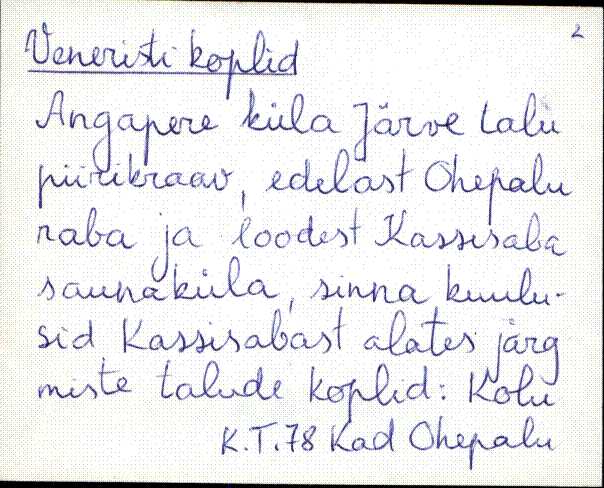 2
Veneristi koplid
Angapere küla Järve talu
piirikraav, edelast Ohepalu
raba ja loodest Kassisaba
saunaküla, sinna kuulu-
sid Kassisabast alates järg
miste talude koplid: Kolu
K.T.78 Kad Ohepalu